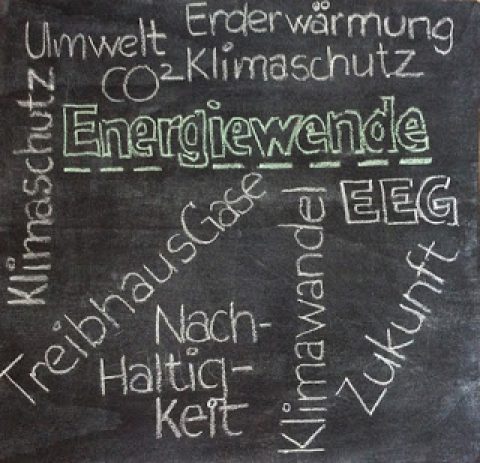 Umwelt
Erderwärmung
CO²
Klimaschutz
Klimaschutz
Energiewende
EEG
TreibhausGase
Klimawandel
Zukunft
Nach-
Haltig-
Keit